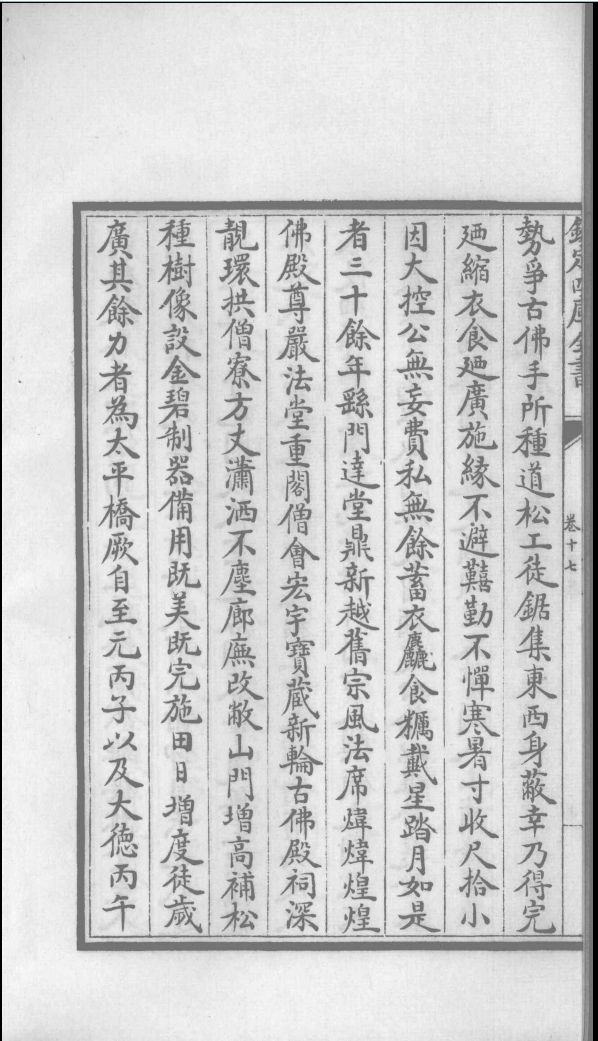 欽定四庫全書
卷十七
勢爭古佛手所種道松工徒鋸集東西身蔽幸乃得完
廼縮衣食廼廣施緣不避囏勤不憚寒暑寸收尺拾小
因大控公無妄費私無餘蓄衣麤食糲戴星踏月如是
者三十餘年繇門達堂鼎新越舊宗風法席煒煒煌煌
佛殿尊嚴法堂重閣僧會宏宇寶蔵新輪古佛殿祠深
靚環拱僧寮方丈瀟洒不塵廊廡改敝山門增高補松
種樹像設金碧制器備用既美既完施田日增度徒歲
廣其餘力者為太平橋厥自至元丙子以及大徳丙午